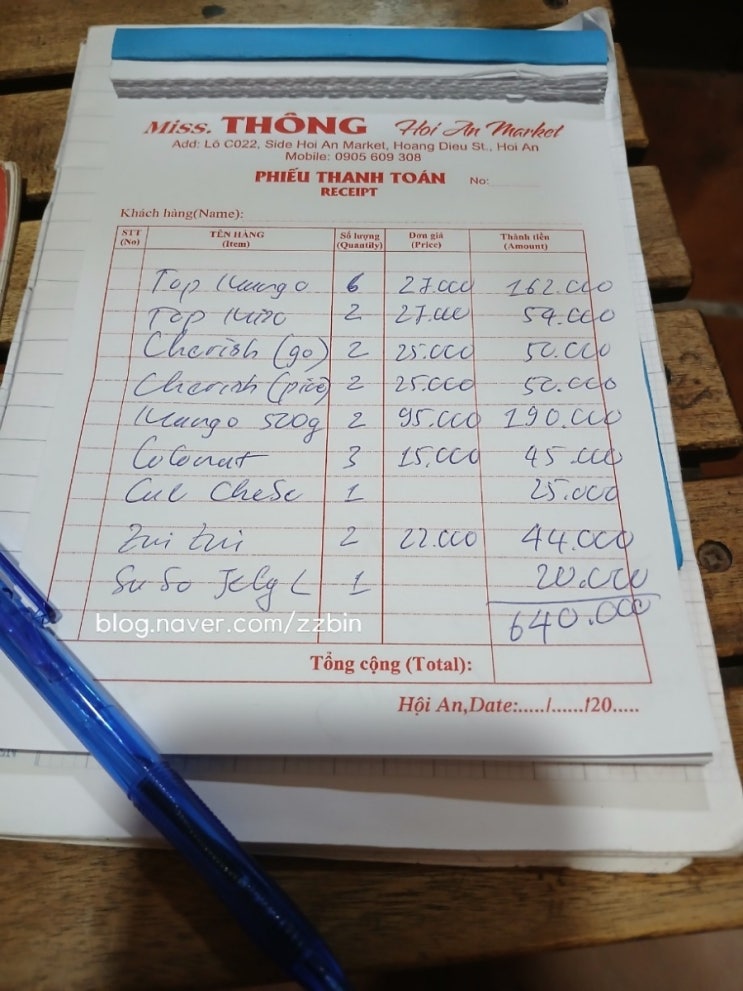 Miss. THÔNG Hoi An Market
Add: Lô C022, Side Hoi An Market, Hoang Dieu St., Hoi An
Mobile: 0905 609 308
PHIẾU THANH TOÁN No:
RECEIPT
Khách hàng(Name):
STT TÊN HÀNG Số lượng Đơn giá Thành tiền
(No) (Item) (Quantily) (Price) (Amount)
Top 6 27.000 162.000
Top 2 27.000 54.000
Cherish (go) 2 25.000 50.000
Cherish 2 25.000 50.000
Mango 520g 2 95.000 190.000
Coconat 3 15.000 45.000
Cul CheSe 1 25.000
Zui Zui 2 22.000 44.000
Su So Jelly L 1 20.000
640.000
blog.naver.com/zzbin
Tổng cộng (Total):
Hội An,Date:...../....../20.....